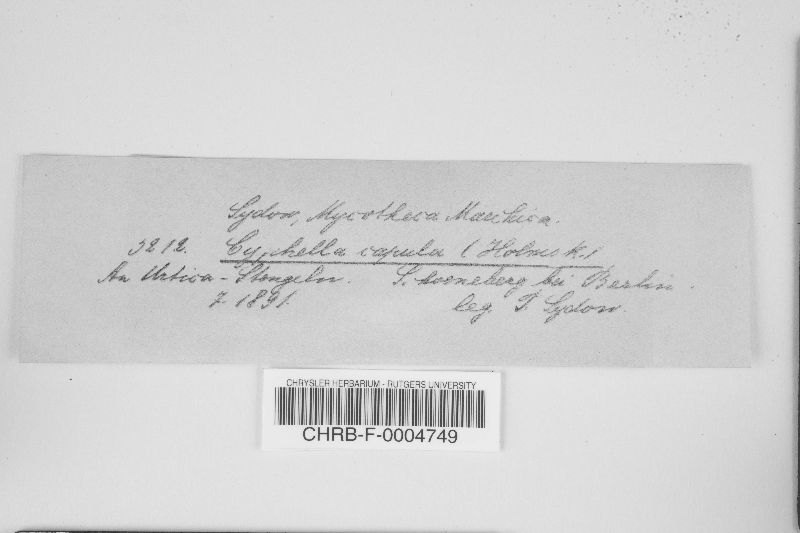 Sydow, Mycotheca Marchica.
3212. Cyphella capula (Holmsk.)
An Urtica-Stengeln. Schoeneberg bei Berlin.
7. 1891. leg. P. Sydow.
CHRYSLER HERBARIUM - RUTGERS UNIVERSITY
CHRB-F-0004749